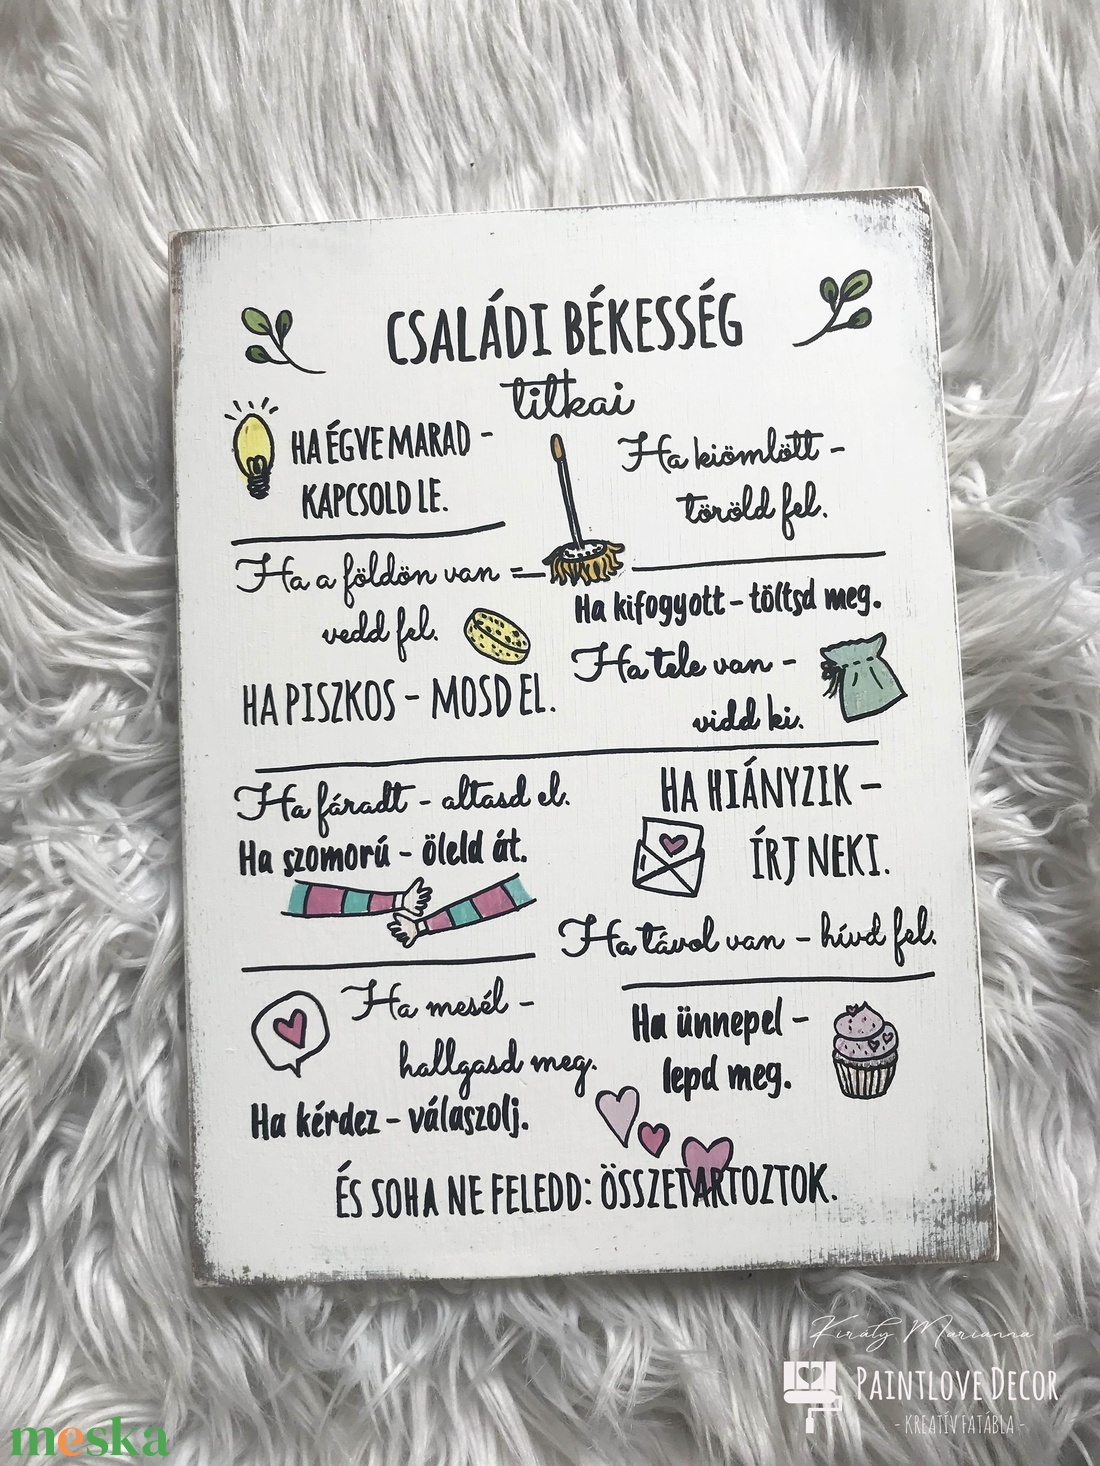 CSALÁDI BÉKESSÉG
titkai
HA ÉGVE MARAD -
KAPCSOLD LE.
Ha kiömlött -
töröld fel.
Ha a földön van =
vedd fel.
HA PISZKOS - MOSD EL.
Ha kifogyott - töltsd meg.
Ha tele van -
vidd ki.
Ha fáradt - altasd el.
Ha szomorú - öleld át.
HA HIÁNYZIK -
ÍRJ NEKI.
Ha távol van - hívd fel.
Ha mesél -
hallgasd meg.
Ha kérdez - válaszolj.
Ha ünnepel -
lepd meg.
ÉS SOHA NE FELEDD: ÖSSZETARTOZTOK.
Király Marianna
PAINTLOVE DECOR
- KREATÍV FATÁBLA -
meska